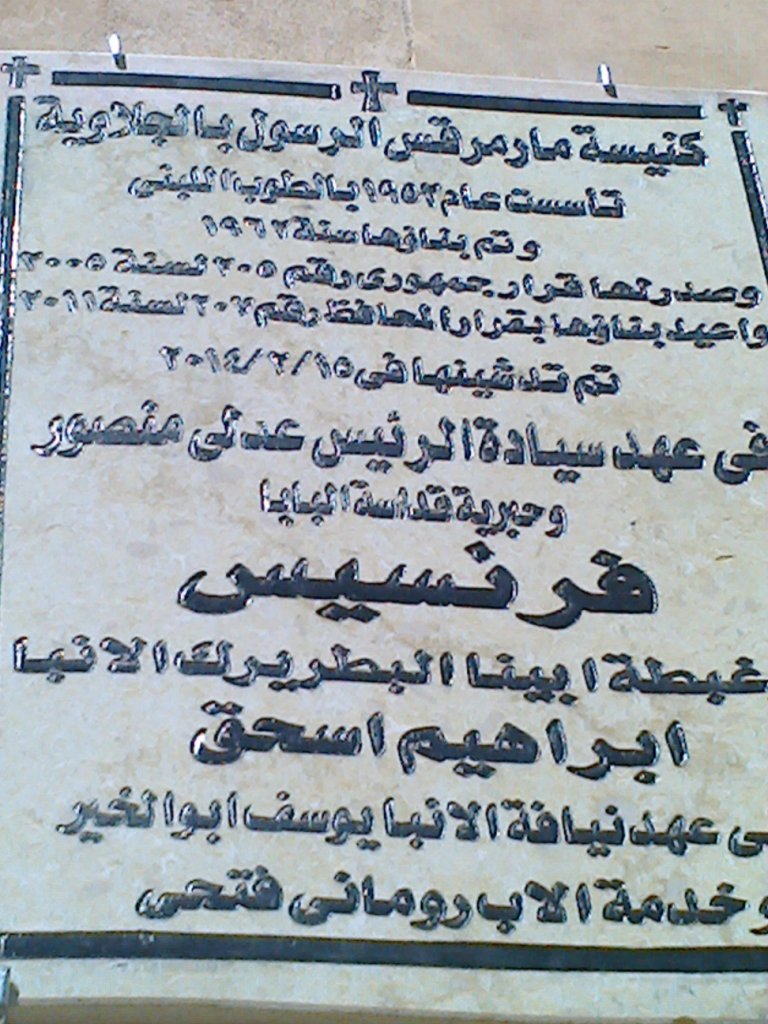 كنيسة مارمرقس الرسول بالجلاوية
تأسست عام ١٩٥٣ بالطوب اللبنى
و تم بناؤها سنة ١٩٦٢
وصدر لها قرار جمهورى رقم ٢٠٥ لسنة ٢٠٠٥
واعيد بناؤها بقرار المحافظ رقم ٢٠٧ لسنة ٢٠١١
تم تدشينها فى ٢٠١٤/٢/١٥
فى عهد سيادة الرئيس عدلى منصور
وحبرية قداسة البابا
فرنسيس
غبطة ابينا البطريرك الانبا
ابراهيم اسحق
فى عهد نيافة الانبا يوسف ابو الخير
و خدمة الاب رومانى فتحى